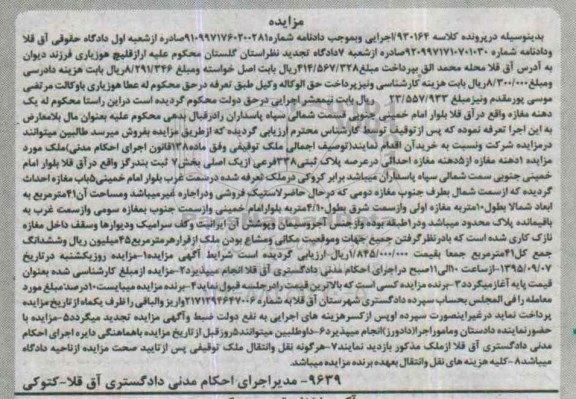 مزایده
بدینوسیله درپرونده کلاسه ۹۳۰۱۶۴/اجرایی وبموجب دادنامه شماره۹۱۰۹۹۷۱۷۶۰۲۰۰۲۸۱صادره ازشعبه اول دادگاه حقوقی آق قلا
ودادنامه شماره ۹۲۰۹۹۷۱۷۱۰۷۰۱۰۳۰صادره ازشعبه ۷دادگاه تجدید نظراستان گلستان محکوم علیه ارازقلیچ هوزیاری فرزند دیوان
به آدرس آق قلا محله محمد الق بپرداخت مبلغ۴۱۴/۵۶۷/۳۲۸ریال بابت اصل خواسته ومبلغ ۸/۲۹۱/۳۴۶ریال بابت هزینه دادرسی
ومبلغ۸/۳۰۰/۰۰۰ریال بابت هزینه کارشناسی ونیزپرداخت حق الوکاله وکیل طبق تعرفه درحق محکوم له عطا هوزیاری باوکالت مرتضی
موسی پورمقدم ونیزمبلغ ۲۳/۵۵۷/۹۳۳ ریال بابت نیمعشر اجرایی درحق دولت محکوم گردیده است دراین راستا محکوم له یک
دهنه مغازه واقع درآق قلا بلوار امام خمینی جنوبی سمت شمالی سپاه پاسداران رادرقبال بدهی محکوم علیه بعنوان مال بلامعارض
به این اجرا تعرفه نموده که پس ازتوقیف توسط کارشناس محترم ارزیابی گردیده که ازطریق مزایده بفروش میرسد طالبین میتوانند
درمزایده شرکت ونسبت به خریدآن اقدام نمایند(توصیف اجمالی ملک توقیفی وفق ماده۱۳۸قانون اجرای احکام مدنی)ملک مورد
مزایده ۱دهنه مغازه از۵دهنه مغازه احداثی درعرصه پلاک ثبتی۳۳۸فرعی ازیک اصلی بخش۷ ثبت بندرگز واقع درآق قلا بلوار امام
خمینی جنوبی سمت شمالی سپاه پاسداران میباشد برابر کروکی درملک تعرفه شده درسمت غرب بلوار امام خمینی۵باب مغازه احداث
گردیده که ازسمت شمال بطرف جنوب مغازه دومی که درحال حاضرلاستیک فروشی ودراجاره غیرمیباشد ومساحت آن۴۱مترمربع به
ابعاد شمالا بطول۱۰متربه مغازه اولی وازسمت شرق بطول۴/۱۰متربه بلوارامام خمینی وازسمت جنوب بمغازه سومی وازسمت غرب به
باقیمانده پلاک محدود میباشد ودر۱طبقه بوده وازجنس آجروسیمان وپوشش آن ایرانیت وکف سرامیک ودیوارها وسقف داخل مغازه
نازک کاری شده است که بادرنظرگرفتن جمیع جهات وموقعیت مکانی ومشاع بودن ملک ازقرارهرمترمربع۴۵میلیون ریال وششدانگ
جمع کل۴۱مترمربع جمعا بقیمت ۱/۸۴۵/۰۰۰/۰۰۰ریال ارزیابی گردیده است شرایط آگهی مزایده۱-مزایده روزیکشنبه درتاریخ
۱۳۹۵/۰۹/۰۷-ازساعت ۱۰الی۱۱صبح دراجرای احکام مدنی دادگستری آق قلا انجام میپذیرد۲-مزایده ازمبلغ کارشناسی شده بعنوان
قیمت پایه آغازمیگردد۳-برنده مزایده کسی است که بالاترین قیمت رادرجلسه قبول نماید۴-برنده مزایده میبایست۱۰درصد:مبلغ مورد
معامله رافی المجلس بحساب سپرده دادگستری شهرستان آق قلابه شماره ۲۱۷۱۲۹۴۶۴۷۰۰۶واریز والباقی را ظرف یکماه ازتاریخ مزایده
پرداخت نماید درغیراینصورت سپرده اوپس ازکسرهزینه های اجرایی به نفع دولت ضبط وآگهی مزایده تجدید میگردد۵-مزایده با
حضورنماینده دادستان وماموراجرا(دادورز)انجام میپذیرد۶-داوطلبین میتوانند۵روزقبل ازتاریخ مزایده باهماهنگی دایره اجرای احکام
مدنی دادگستری آق قلا ازملک مذکور بازدید نمایند۷-هرگونه نقل وانتقال ملک توقیفی پس ازتایید صحت مزایده ازناحیه دادگاه
میباشد۸-کلیه هزینه های نقل وانتقال بعهده برنده مزایده میباشد.
۹۶۳۹- مدیراجرای احکام مدنی دادگستری آق قلا-کتوکی